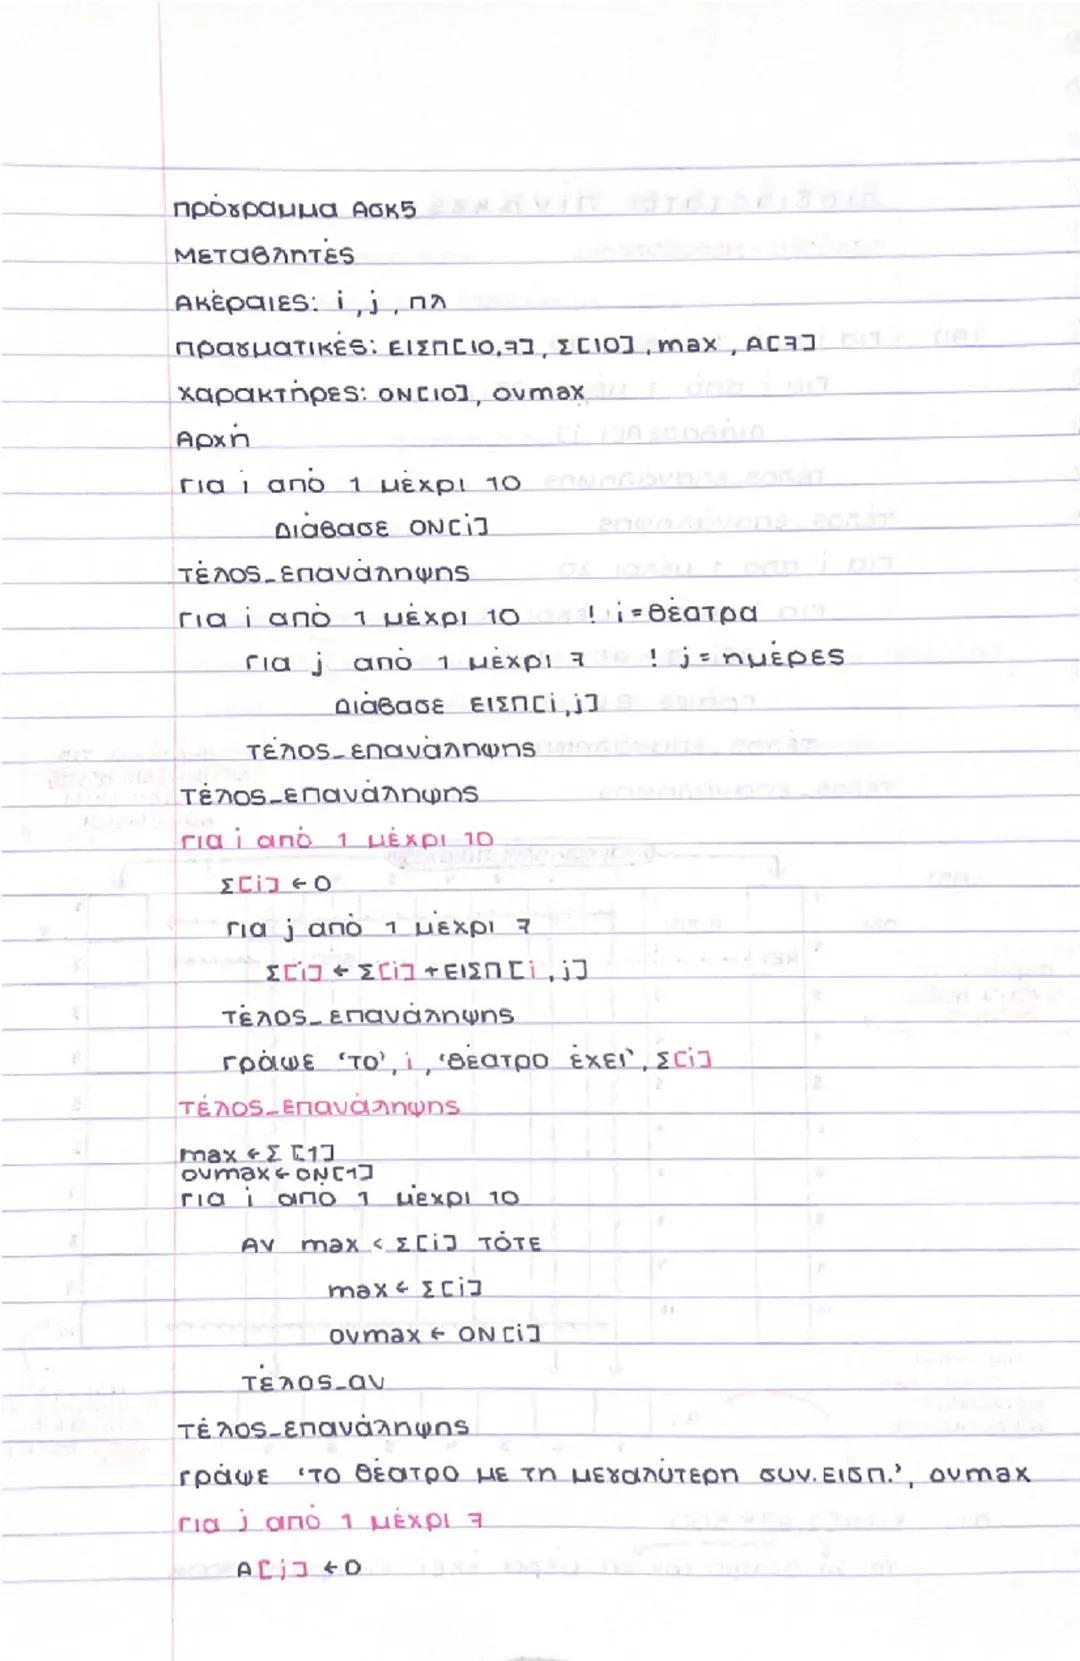 Πρόγραμμα Ασκ5
Μεταβλητές
Ακέραιες: i, j, πλ
Πραγματικές: ΕΙΣΠ[10,7], Σ[10], max, Α[7]
Χαρακτήρες: ΟΝ[10], ονmax
Αρχή
Για i από 1 μέχρι 10
Διάβασε ΟΝ[i]
Τέλος_επανάληψης
Για i από 1 μέχρι 10 ! i=θέατρα
Για j από 1 μέχρι 7 ! j=ημέρες
Διάβασε ΕΙΣΠ[i,j]
Τέλος_επανάληψης
Τέλος_επανάληψης
Για i από 1 μέχρι 10
Σ[i] ← 0
Για j από 1 μέχρι 7
Σ[i] ← Σ[i] + ΕΙΣΠ[i,j]
Τέλος_επανάληψης
Γράψε 'Το', i, 'θέατρο έχει', Σ[i]
Τέλος_επανάληψης
max ← Σ[1]
ονmax ← ΟΝ[1]
Για i από 1 μέχρι 10
Αν max < Σ[i] τότε
max ← Σ[i]
ονmax ← ΟΝ[i]
Τέλος_αν
Τέλος_επανάληψης
Γράψε 'Το θέατρο με τη μεγαλύτερη συν.εισπ.', ονmax
Για j από 1 μέχρι 7
Α[j] ← 0